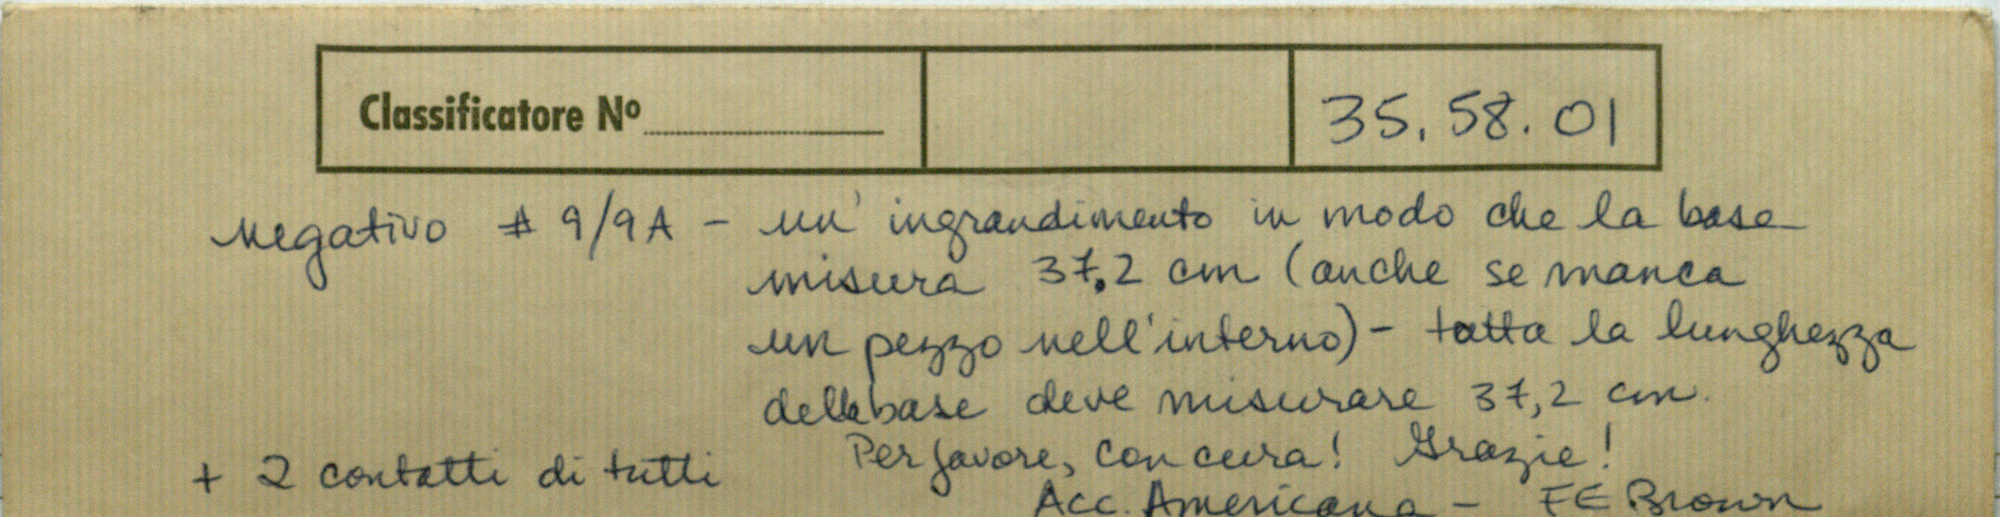 Classificatore Nº
35.58.01
negativo # 9/9A - un' ingrandimento in modo che la base
misura 37,2 cm (anche se manca
un pezzo nell'interno) - tutta la lunghezza
della base deve misurare 37,2 cm.
Per favore, con cura! Grazie!
+ 2 contatti di tutti
Acc. Americana - FE Brown